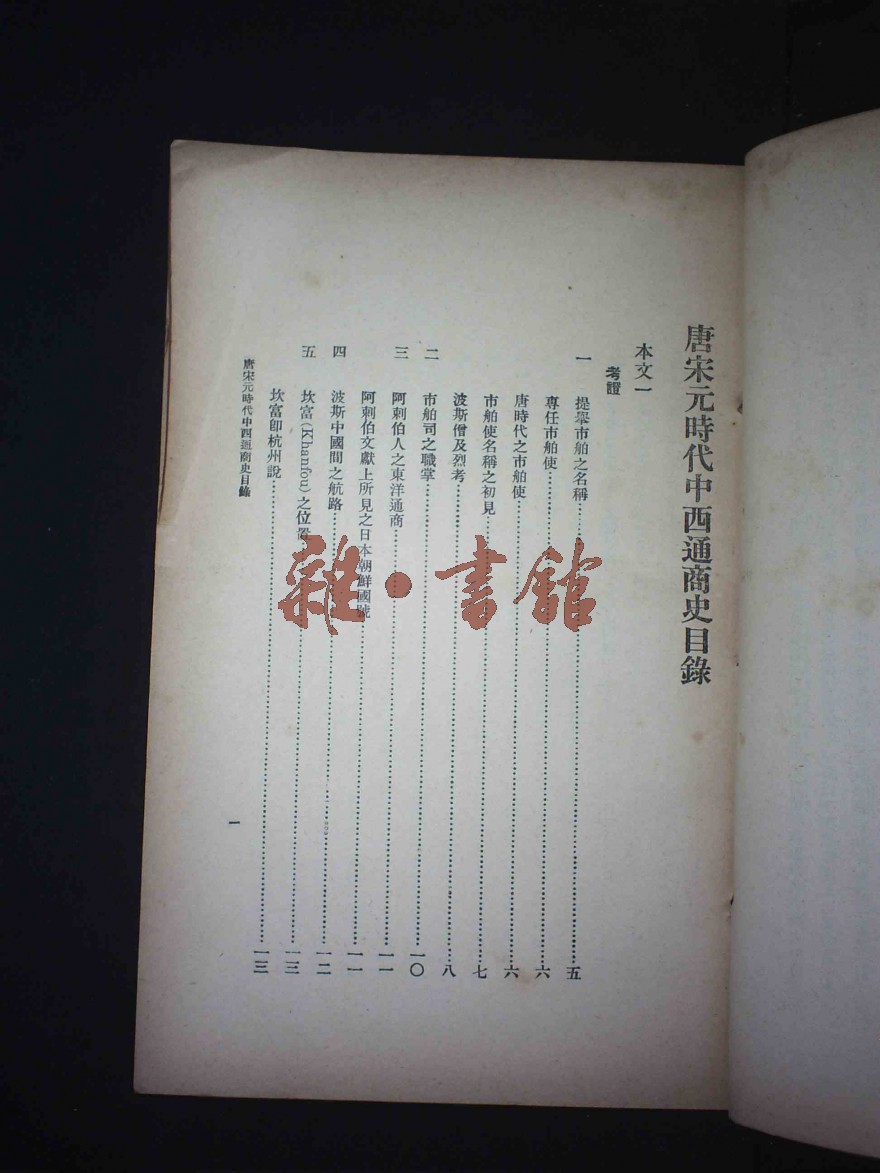 唐宋元時代中西通商史目錄
本文一
考證
一 提舉市舶之名稱……五
專任市舶使……六
唐時代之市舶使……六
市舶使名稱之初見……七
波斯僧及烈考……八
二 市舶司之職掌……一〇
三 阿剌伯人之東洋通商……一一
阿剌伯文獻上所見之日本朝鮮國號……一一
四 波斯中國間之航路……一二
五 坎富(Khanfou)之位置……一三
坎富卽杭州說……一三
唐宋元時代中西通商史目錄
一
雜·書館